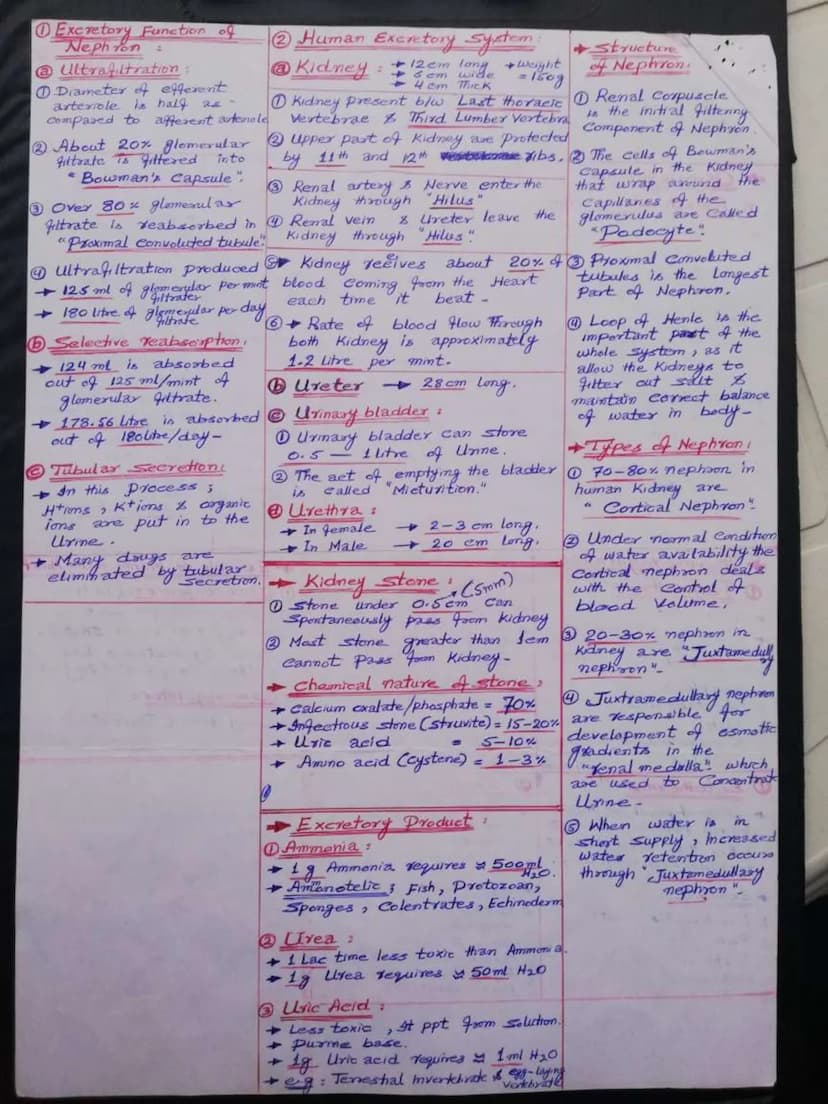 ① Excretory Function of
Nephron :
ⓐ Ultrafiltration :
① Diameter of efferent
arteriole is half as -
compared to afferent arteriole
② About 20% glomerular
filtrate is filtered into
"Bowman's Capsule".
③ Over 80% glomerular
filtrate is reabsorbed in
"Proximal Convoluted tubule".
④ Ultrafiltration produced
→ 125 ml of glomerular per mint
filtrate
→ 180 litre of glomerular per day
filtrate
ⓑ Selective reabsorption.
→ 124 ml is absorbed
out of 125 ml/mint of
glomerular filtrate.
→ 178.56 litre is absorbed
out of 180 litre/day -
ⓒ Tubular Secretion:
→ In this Process ;
H+ions , K+ions & organic
ions are put in to the
Urine .
→ Many drugs are
eliminated by tubular
secretion.
② Human Excretory System:
ⓐ Kidney : → 12 cm long → Weight
→ 6 cm wide = 150g
→ 4 cm Thick
① Kidney Present b/w Last thoracic
Vertebrae & Third Lumber Vertebra
② Upper part of Kidney are Protected
by 11th and 12th ribs.
③ Renal artery & Nerve enter the
Kidney through "Hilus"
④ Renal vein & Ureter leave the
Kidney through "Hilus".
⑤→ Kidney receives about 20% of
blood coming from the Heart
each time it beat -
⑥ → Rate of blood flow through
both Kidney is approximately
1.2 litre per mint.
ⓑ Ureter → 28 cm long.
ⓒ Urinary bladder :
① Urinary bladder can store
0.5 — 1 litre of Urine.
② The act of emptying the bladder
is called "Micturition."
ⓓ Urethra :
→ In female → 2-3 cm long.
→ In Male → 20 cm long.
→ Kidney Stone : (5mm)
① Stone under 0.5 cm can
Spontaneously pass from kidney
② Most stone greater than 1cm
cannot Pass from Kidney -
→ Chemical nature of stone :
→ Calcium oxalate/phosphate = 70%
→ Infectious stone (struvite) = 15-20%
→ Uric acid = 5-10%
→ Amino acid (cystene) = 1-3%
→ Excretory Product :
① Ammonia :
→ 1g Ammonia requires ≈ 500ml
H2O.
→ Ammonotelic ; Fish, Protozoan,
Sponges , Colentrates , Echinoderm
② Urea :
→ 1 Lac time less toxic than Ammonia.
→ 1g Urea requires ≈ 50ml H2O
③ Uric Acid :
→ Less toxic , It ppt from Solution.
→ Purine base.
→ 1g Uric acid requires ≈ 1ml H2O
→ e.g : Terreshal Invertebrate & egg-laying
vertebrate
→ Structure
of Nephron:
① Renal Corpuscle
is the initial filtering
Component of Nephron.
② The cells of Bowman's
capsule in the Kidney
that wrap around the
Capillaries of the
glomerulus are called
"Podocyte".
③ Proxmal Convoluted
tubules is the Longest
Part of Nephron.
④ Loop of Henle is the
important part of the
whole System , as it
allow the Kidneys to
filter out salt &
maintain correct balance
of water in body -
→ Types of Nephron:
① 70-80% nephron in
human Kidney are
"Cortical Nephron".
② Under normal Condition
of water availability the
Cortical nephron deals
with the Control of
blood Volume.
③ 20-30% nephron in
kidney are "Juxtamedully
nephron".
④ Juxtramedullary nephron
are responsible for
development of esmotic
gradients in the
"renal medulla" which
are used to Concentrat
Urine -
⑤ When water is in
short supply , Increased
water retention occurs
through "Juxtamedullary
nephron".